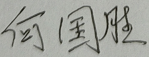 何国胜